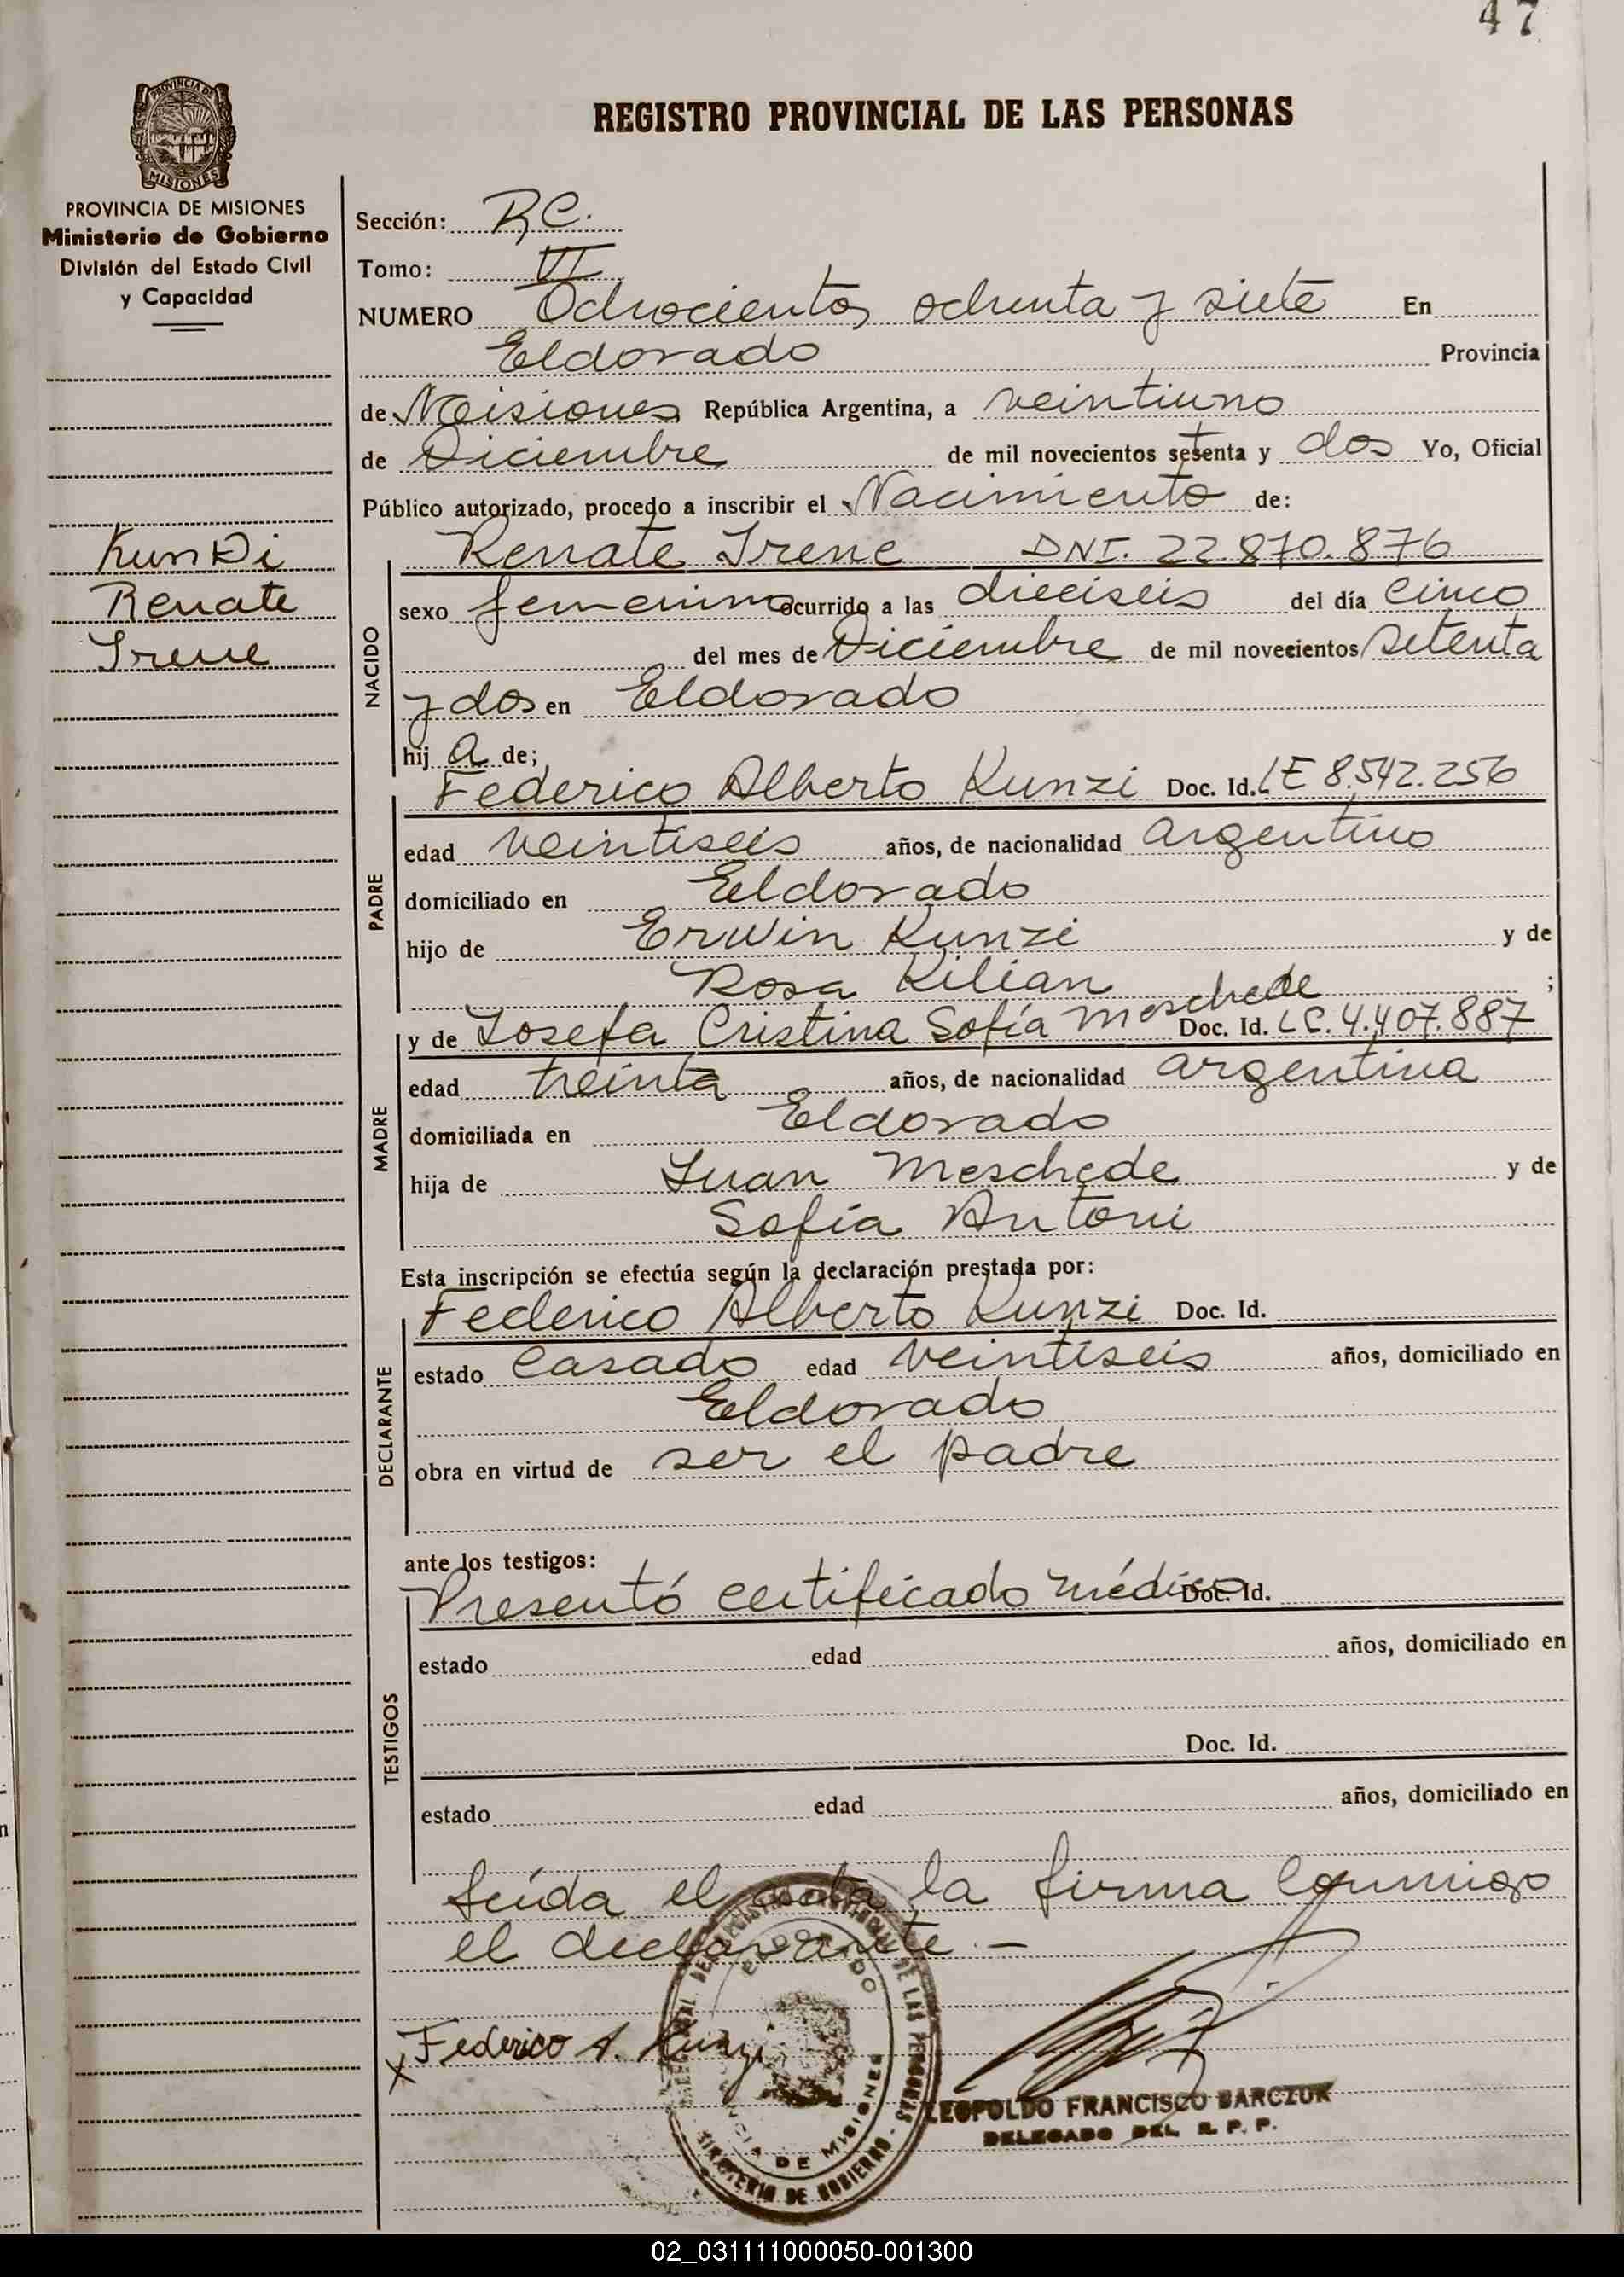 47
REGISTRO PROVINCIAL DE LAS PERSONAS
PROVINCIA DE
MISIONES
PROVINCIA DE MISIONES
Ministerio de Gobierno
División del Estado Civil
y Capacidad
Kunzi
Renate
Irene
Sección: R.C.
Tomo: VI
NUMERO Ochocientos ochenta y siete En
Eldorado Provincia
de Misiones República Argentina, a veintiuno
de Diciembre de mil novecientos setenta y dos Yo, Oficial
Público autorizado, procedo a inscribir el Nacimiento de:
NACIDO
Renate Irene DNI. 22.870.876
sexo femenino ocurrido a las dieciseis del día cinco
del mes de Diciembre de mil novecientos setenta
y dos en Eldorado
hij a de;
PADRE
Federico Alberto Kunzi Doc. Id. LE 8.542.256
edad veintiseis años, de nacionalidad argentino
domiciliado en Eldorado
hijo de Erwin Kunzi y de
Rosa Kilian ;
MADRE
y de Josefa Cristina Sofía Meschede Doc. Id. LC. 4.407.887
edad treinta años, de nacionalidad argentina
domiciliada en Eldorado
hija de Juan Meschede y de
Sofía Antoni
Esta inscripción se efectúa según la declaración prestada por:
DECLARANTE
Federico Alberto Kunzi Doc. Id.
estado Casado edad veintiseis años, domiciliado en
Eldorado
obra en virtud de ser el padre
ante los testigos:
TESTIGOS
Presentó certificado médico Doc. Id.
estado edad años, domiciliado en
Doc. Id.
estado edad años, domiciliado en
Leída el acta la firma conmigo
el declarante.-
x Federico A. Kunzi
REGISTRO PROVINCIAL DE LAS PERSONAS
ELDORADO
PROVINCIA DE MISIONES
MINISTERIO DE GOBIERNO
LEOPOLDO FRANCISCO BARCZUK
DELEGADO DEL R. P. P.
02_031111000050-001300